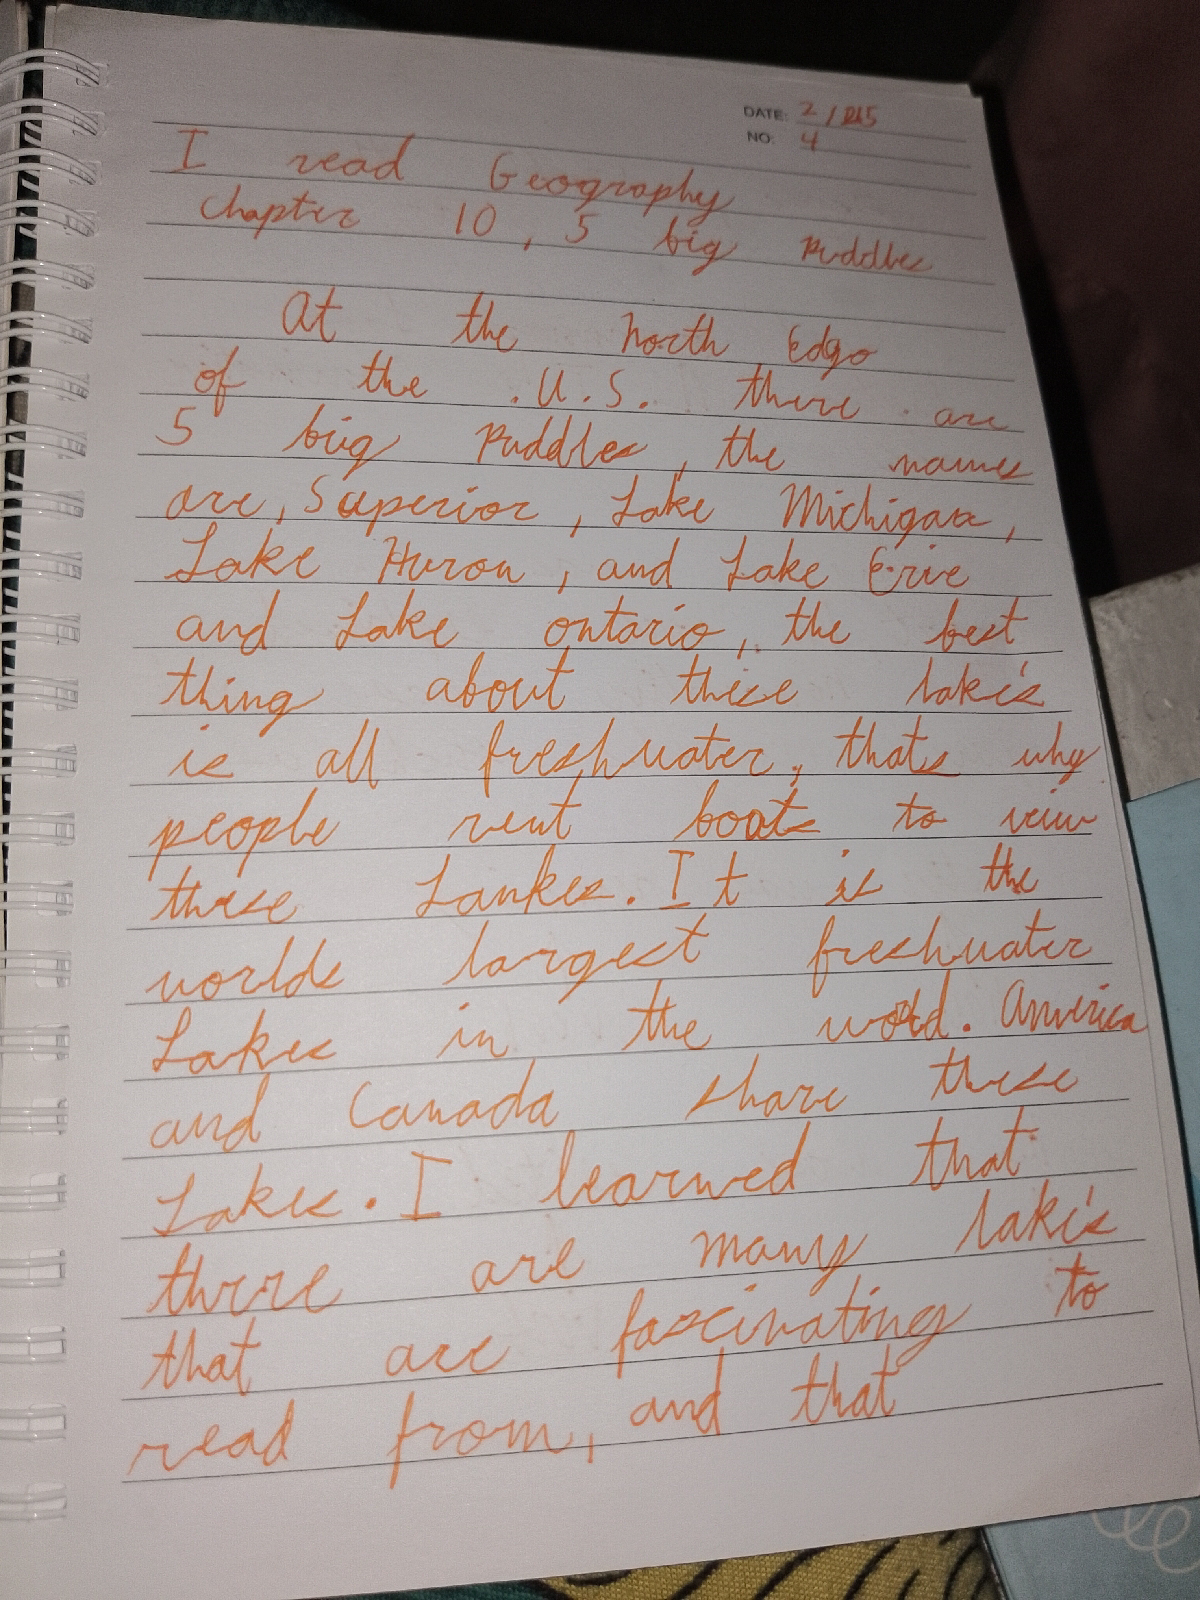 DATE: 2 /
NO: 4
I read Geography
chapter 10, 5 big Puddles
At the North Edge
of the .U.S. there are
5 big Puddles, the names
are, Superior, Lake Michigan,
Lake Huron, and Lake Erie
and Lake ontario, the best
thing about these lake's
is all freshwater, thats why
people rent boats to veiw
these Lankes. It is the
worlds largest freshwater
Lakes in the world. America
and Canada share these
Lakes. I learned that
there are many lake's
that are fascinating to
read from, and that